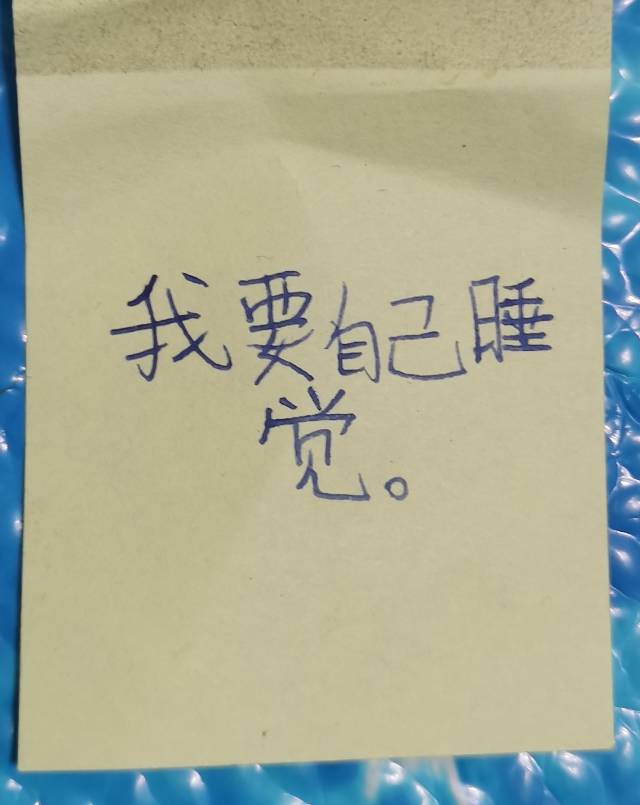 我要自己睡
觉。